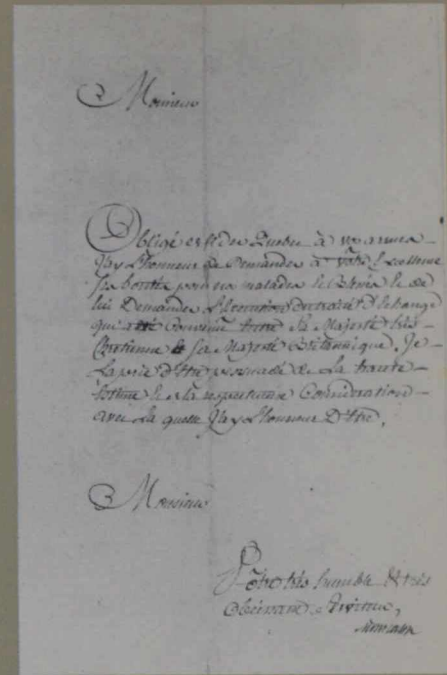 Monsieur
Obligé de ceder Quebec à vos armes
J'ay L'honneur de Demander à votre Excellence
ses bontés pour nos malades & Blessés & de
lui Demander L'Execution du traité d'Echange
qui a été Convenu Entre Sa Majesté très
Chretienne & Sa Majesté Britannique. Je
La prie d'Etre persuadé de La haute
Estime & de la respectueuse Consideration
avec La quelle J'ay L'honneur D'Etre,
Monsieur
Votre très humble & très
Obeissant Serviteur,
Montcalm